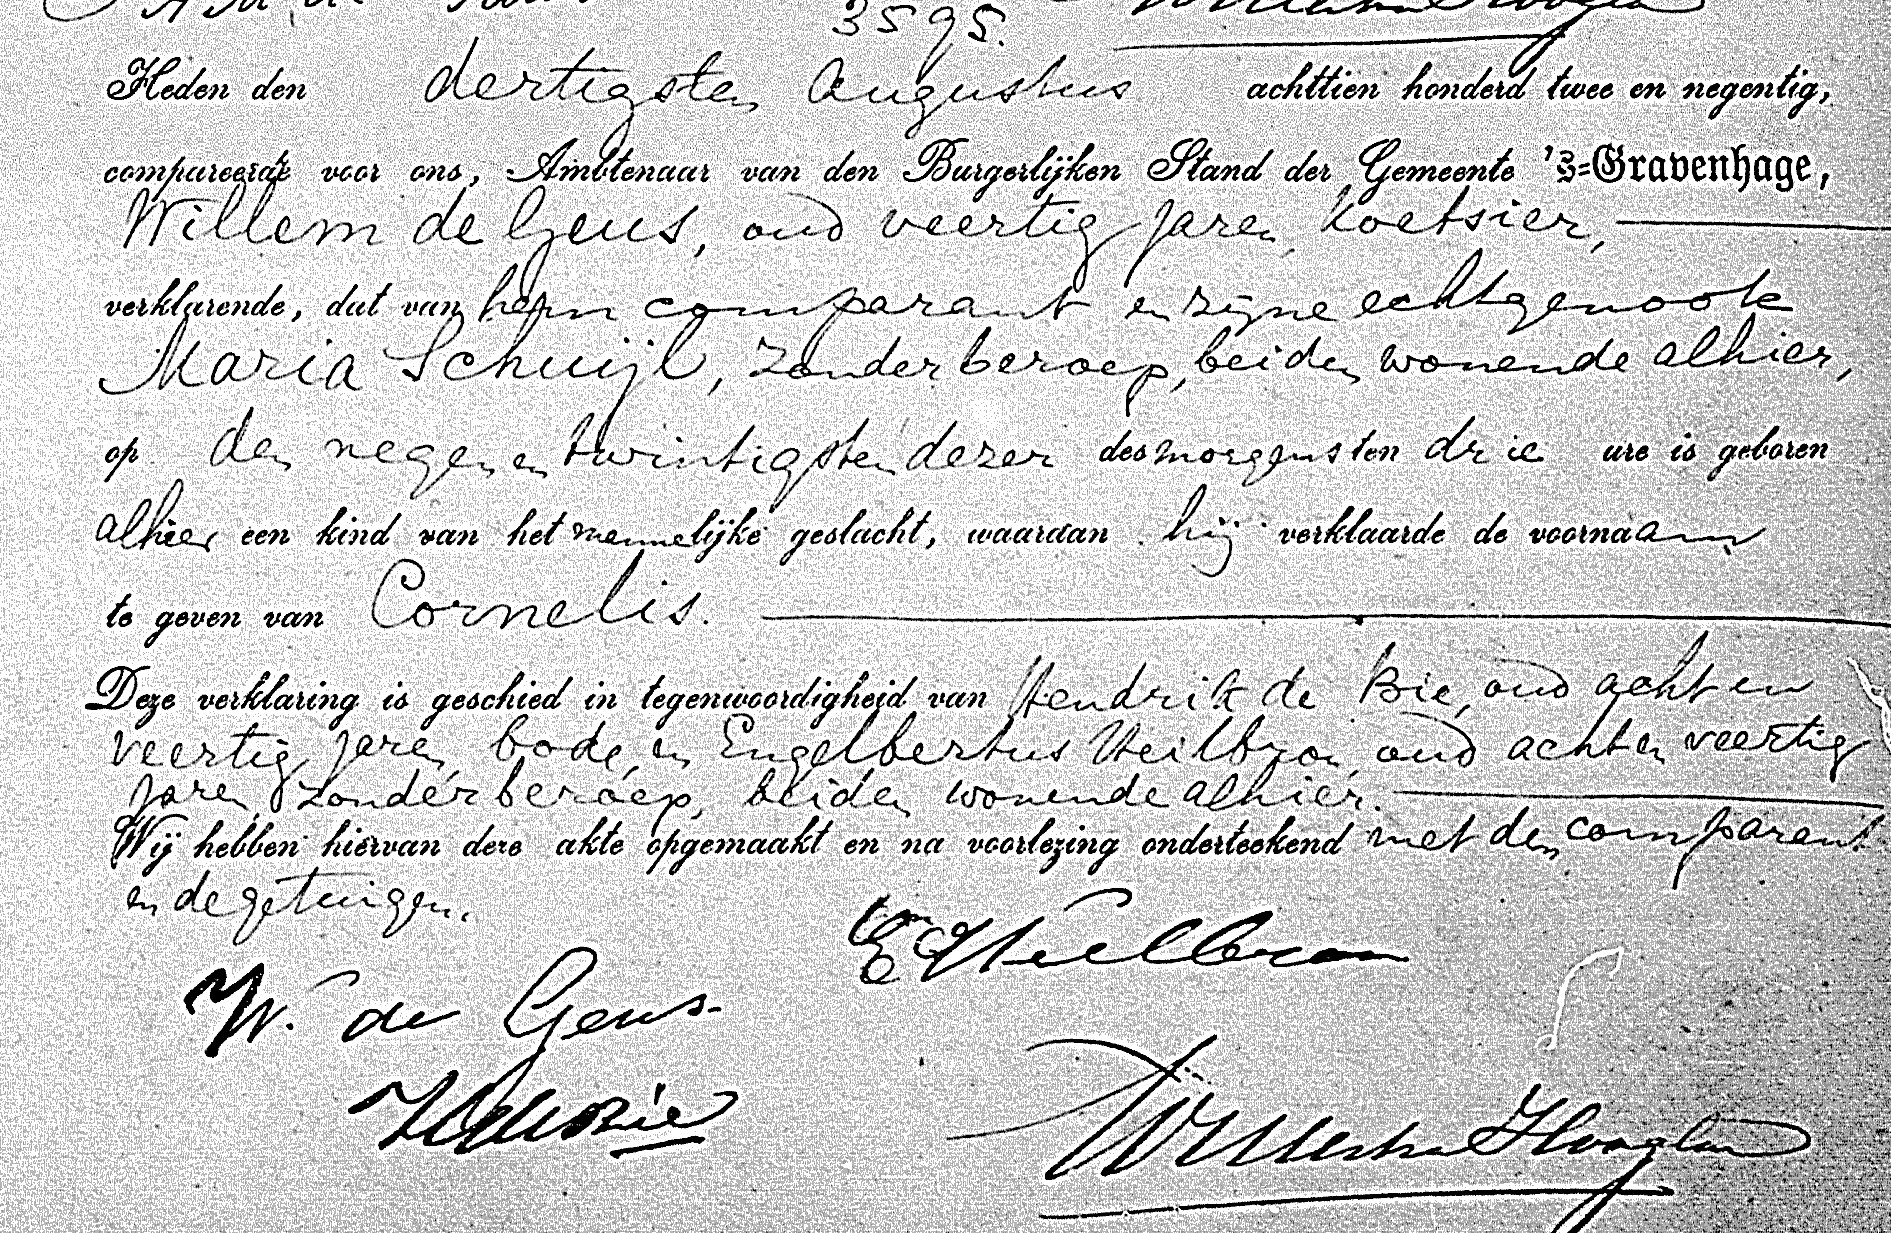 3595.
Heden den dertigsten Augustus achttien honderd twee en negentig,
compareerde voor ons, Ambtenaar van den Burgerlijken Stand der Gemeente 's=Gravenhage,
Willem de Geus, oud veertig jaren, koetsier,
verklarende, dat van hem comparant en zijne echtgenoote
Maria Schuijl, zonder beroep, beiden wonende alhier,
op den negen en twintigsten dezer des morgens ten drie ure is geboren
alhier een kind van het mannelijke geslacht, waaraan hij verklaarde de voornaam
te geven van Cornelis.
Deze verklaring is geschied in tegenwoordigheid van Hendrik de Bie, oud acht en
veertig jaren, bode, en Engelbertus Heilbron, oud acht en veertig
jaren, zonder beroep, beiden wonende alhier.
Wij hebben hiervan deze akte opgemaakt en na voorlezing onderteekend met den comparant
en de getuigen.
E Heilbron
W. de Geus.
H de Bie